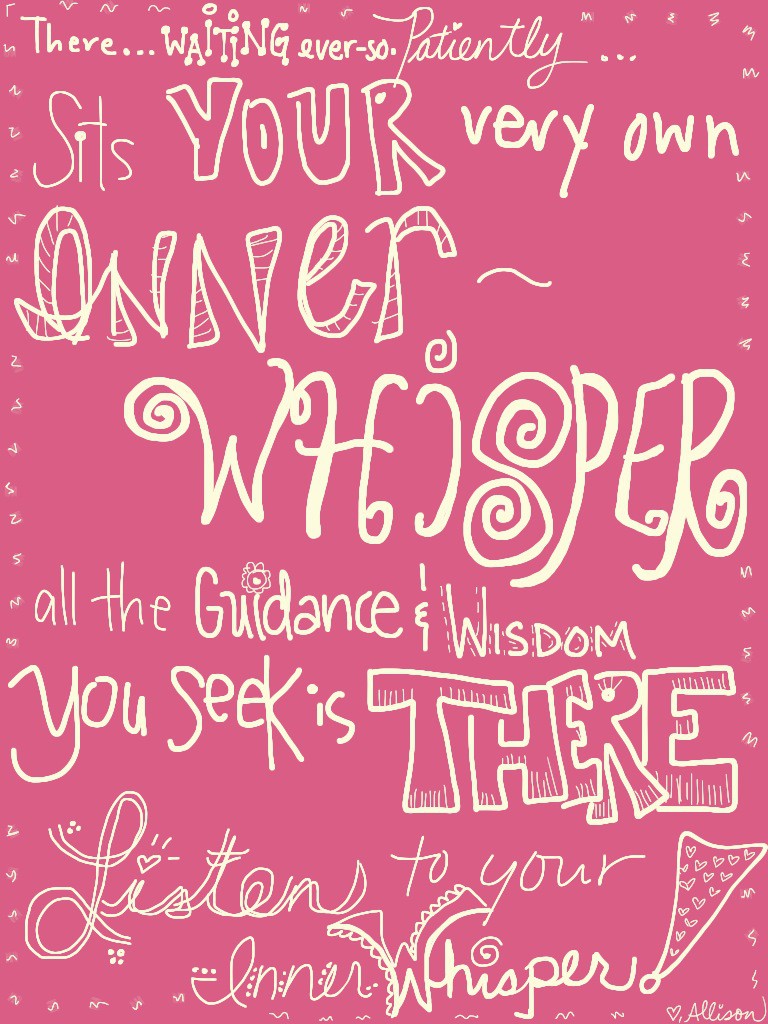 There... WAITING ever-so. Patiently ...
Sits YOUR very own
INNER ~
WHISPER
all the Guidance & WISDOM
you seek is THERE
Listen to your
Inner Whisper
♡, Allison